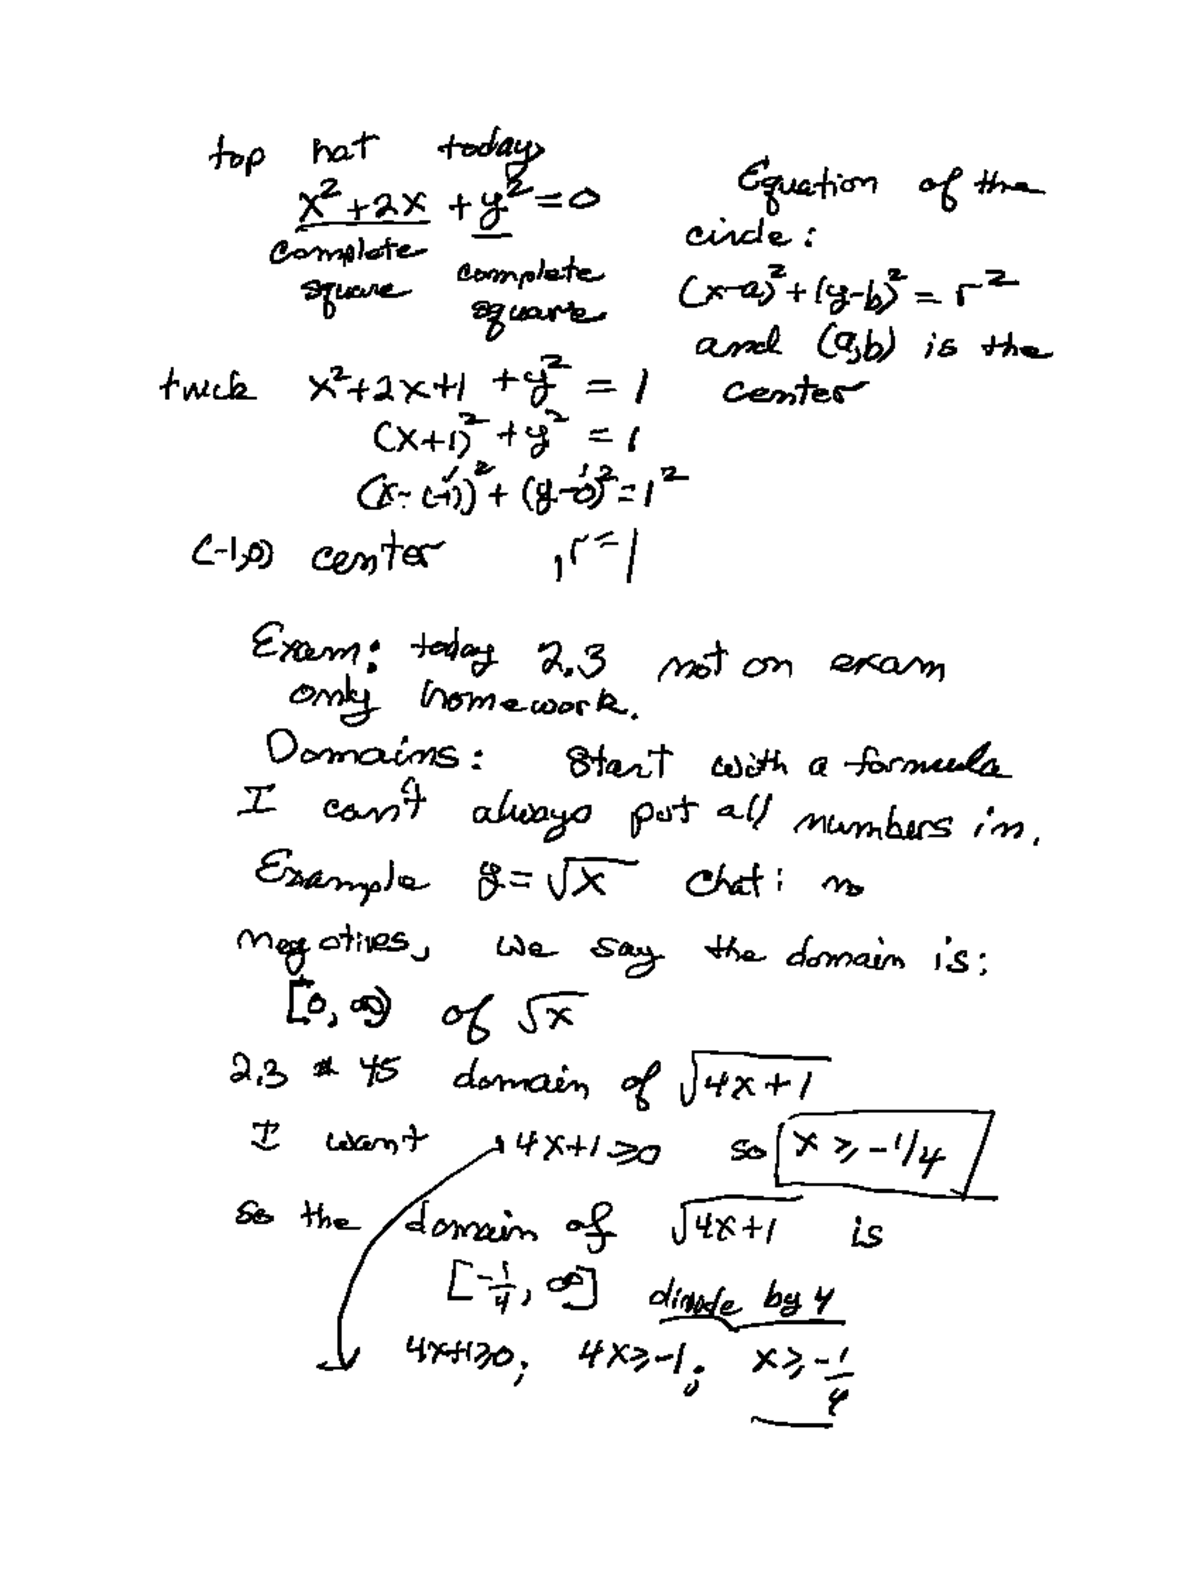 top hat today
x²+2x + y² = 0
complete square
complete square
Equation of the
circle:
(x-a)² + (y-b)² = r²
and (a,b) is the
center
trick x²+2x+1 + y² = 1
(x+1)² + y² = 1
(x-(-1))² + (y-0)² = 1²
(-1,0) center , r=1
Exam: today 2.3 not on exam
only homework.
Domains: Start with a formula
I can't always put all numbers in.
Example y = √x Chat: no
negatives, we say the domain is:
[0, ∞) of √x
2.3 # 45 domain of √4x+1
I want 4x+1 ≥ 0 so x ≥ -1/4
so the domain of √4x+1 is
[-1/4, ∞] divide by 4
4x+1≥0; 4x≥-1; x≥-1/4